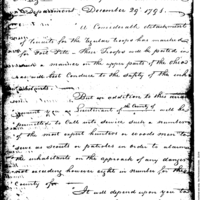 Department December 29th 1791.
A Considerable detachment
of recruits for the regular troops has marched
for Fort Pitt. These Troops will be posted in
such a manner on the upper parts of the Ohio
as will best Conduce to the safety of the inha
bitants.
But in addition to this
Lieutenant of the County of will be
permitted to Call into service such a number of
the most expert hunters or woods men to
serve as scouts or patroles in order to alarm
the inhabitants on the approach of any danger
not exceeding however eight in number for the
County of
It will depend upon you to